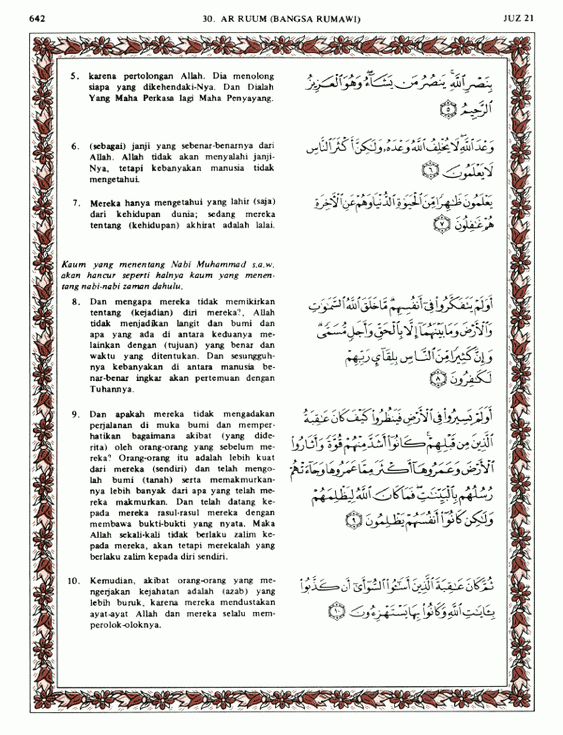 642
30. AR RUUM (BANGSA RUMAWI)
JUZ 21
5. karena pertolongan Allah. Dia menolong
siapa yang dikehendaki-Nya. Dan Dialah
Yang Maha Perkasa lagi Maha Penyayang.
بِنَصْرِ ٱللَّهِ ۚ يَنصُرُ مَن يَشَآءُ ۖ وَهُوَ ٱلْعَزِيزُ
ٱلرَّحِيمُ ٥
6. (sebagai) janji yang sebenar-benarnya dari
Allah. Allah tidak akan menyalahi janji-
Nya, tetapi kebanyakan manusia tidak
mengetahui.
وَعْدَ ٱللَّهِ ۖ لَا يُخْلِفُ ٱللَّهُ وَعْدَهُۥ وَلَٰكِنَّ أَكْثَرَ ٱلنَّاسِ
لَا يَعْلَمُونَ ٦
7. Mereka hanya mengetahui yang lahir (saja)
dari kehidupan dunia; sedang mereka
tentang (kehidupan) akhirat adalah lalai.
يَعْلَمُونَ ظَٰهِرًا مِّنَ ٱلْحَيَوٰةِ ٱلدُّنْيَا وَهُمْ عَنِ ٱلْءَاخِرَةِ
هُمْ غَٰفِلُونَ ٧
Kaum yang menentang Nabi Muhammad s.a.w.
akan hancur seperti halnya kaum yang menen-
tang nabi-nabi zaman dahulu.
8. Dan mengapa mereka tidak memikirkan
tentang (kejadian) diri mereka?, Allah
tidak menjadikan langit dan bumi dan
apa yang ada di antara keduanya me-
lainkan dengan (tujuan) yang benar dan
waktu yang ditentukan. Dan sesungguh-
nya kebanyakan di antara manusia be-
nar-benar ingkar akan pertemuan dengan
Tuhannya.
أَوَلَمْ يَتَفَكَّرُوا۟ فِىٓ أَنفُسِهِم ۗ مَّا خَلَقَ ٱللَّهُ ٱلسَّمَٰوَٰتِ
وَٱلْأَرْضَ وَمَا بَيْنَهُمَآ إِلَّا بِٱلْحَقِّ وَأَجَلٍ مُّسَمًّى ۗ
وَإِنَّ كَثِيرًا مِّنَ ٱلنَّاسِ بِلِقَآئِ رَبِّهِمْ
لَكَٰفِرُونَ ٨
9. Dan apakah mereka tidak mengadakan
perjalanan di muka bumi dan memper-
hatikan bagaimana akibat (yang dide-
rita) oleh orang-orang yang sebelum me-
reka? Orang-orang itu adalah lebih kuat
dari mereka (sendiri) dan telah mengo-
lah bumi (tanah) serta memakmurkan-
nya lebih banyak dari apa yang telah me-
reka makmurkan. Dan telah datang ke-
pada mereka rasul-rasul mereka dengan
membawa bukti-bukti yang nyata. Maka
Allah sekali-kali tidak berlaku zalim ke-
pada mereka, akan tetapi merekalah yang
berlaku zalim kepada diri sendiri.
أَوَلَمْ يَسِيرُوا۟ فِى ٱلْأَرْضِ فَيَنظُرُوا۟ كَيْفَ كَانَ عَٰقِبَةُ
ٱلَّذِينَ مِن قَبْلِهِمْ ۚ كَانُوٓا۟ أَشَدَّ مِنْهُمْ قُوَّةً وَأَثَارُوا۟
ٱلْأَرْضَ وَعَمَرُوهَآ أَكْثَرَ مِمَّا عَمَرُوهَا وَجَآءَتْهُمْ
رُسُلُهُم بِٱلْبَيِّنَٰتِ ۖ فَمَا كَانَ ٱللَّهُ لِيَظْلِمَهُمْ
وَلَٰكِن كَانُوٓا۟ أَنفُسَهُمْ يَظْلِمُونَ ٩
10. Kemudian, akibat orang-orang yang me-
ngerjakan kejahatan adalah (azab) yang
lebih buruk, karena mereka mendustakan
ayat-ayat Allah dan mereka selalu mem-
perolok-oloknya.
ثُمَّ كَانَ عَٰقِبَةَ ٱلَّذِينَ أَسَٰٓـُٔوا۟ ٱلسُّوٓأَىٰٓ أَن كَذَّبُوا۟
بِـَٔايَٰتِ ٱللَّهِ وَكَانُوا۟ بِهَا يَسْتَهْزِءُونَ ١٠